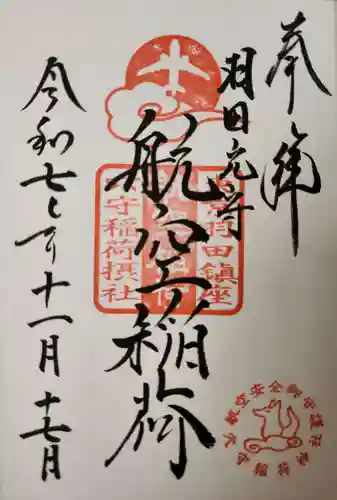 奉拝
羽田元守
航空稲荷
守稲荷摂社
羽田鎮座
令和七年十一月十七日